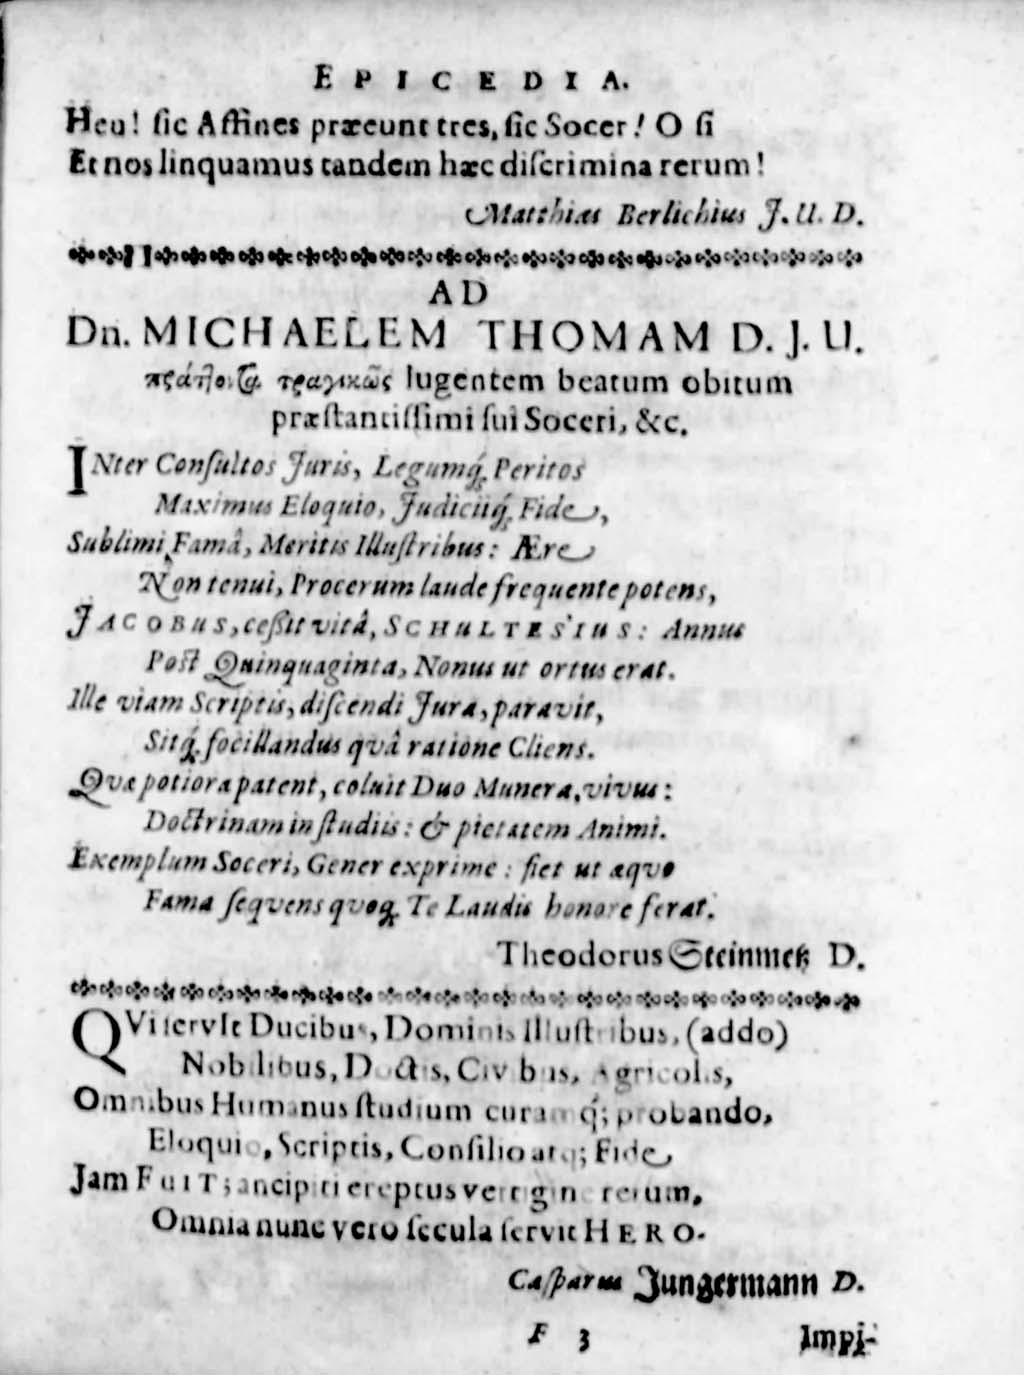 EPICEDIA.
Heu! ſic Affines præeunt tres, ſic Socer! O ſi
Et nos linquamus tandem hæc diſcrimina rerum!
Matthias Berlichius J. U. D.
AD
Dn. MICHAELEM THOMAM D. J. U.
τραγικῶς lugentem beatum obitum
præſtantiſſimi ſui Soceri, &c.
INter Conſultos Juris, Legumq́; Peritos
Maximus Eloquio, Judiciiq́; Fide,
Sublimi Famâ, Meritis Illuſtribus: Ære
Non tenui, Procerum laude frequente potens,
JACOBUS, ceßit vitâ, SCHULTESIUS: Annus
Poſt Quinquaginta, Nonus ut ortus erat.
Ille viam Scriptis, diſcendi Jura, paravit,
Sitq́; focillandus quâ ratione Cliens.
Quæ potiora patent, coluit Duo Munera, vivus:
Doctrinam in ſtudiis: & pietatem Animi.
Exemplum Soceri, Gener exprime: fiet ut æquo
Fama ſequens quoq; Te Laudis honore ferat.
Theodorus Steinmetz D.
QVi ſerVIt Ducibus, Dominis Illuſtribus, (addo)
Nobilibus, Doctis, Civibus, Agricolis,
Omnibus Humanus ſtudium curamq́; probando,
Eloquio, Scriptis, Conſilio atq; Fide,
Jam FUIT; ancipiti ereptus vertigine rerum,
Omnia nunc vero ſecula ſervit HERO.
Caſparus Jungermann D.
F 3
Impi-